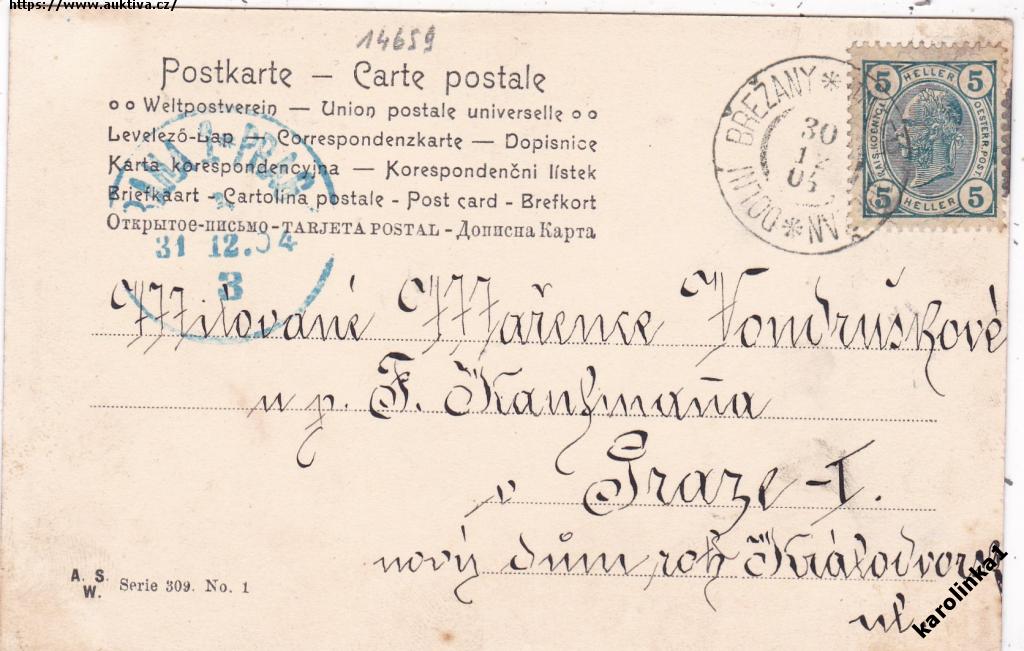 https://www.auktiva.cz/
14659
Postkarte – Carte postale
Weltpostverein — Union postale universelle
Levelező-Lap — Correspondenzkarte — Dopisnice
Karta korespondencyjna — Korespondenční lístek
Briefkaart - Cartolina postale - Post card - Brefkort
Открытое-письмо-TARJETA POSTAL-Дописна Карта
DOLNÍ BŘEŽANY
30
5 HELLER 5
KAIS. KOENIGL. OESTERR. POST
5 HELLER 5
31 12.04
3
Milované Mařence Vondruškové
u p. F. Kaufmanna
v Praze-I.
nový dům roh Králodvorsk
ul
A. S.
W.
Serie 309. No. 1
karolinka1